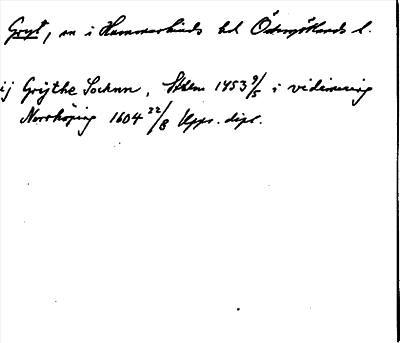 Gryt, sn i Hammarkinds hd Östergötlands l.
ij Grijthe Socknn, Sthlm 1453 9/5 i vidimering
Norrköping 1604 22/8 Upps. dipl.